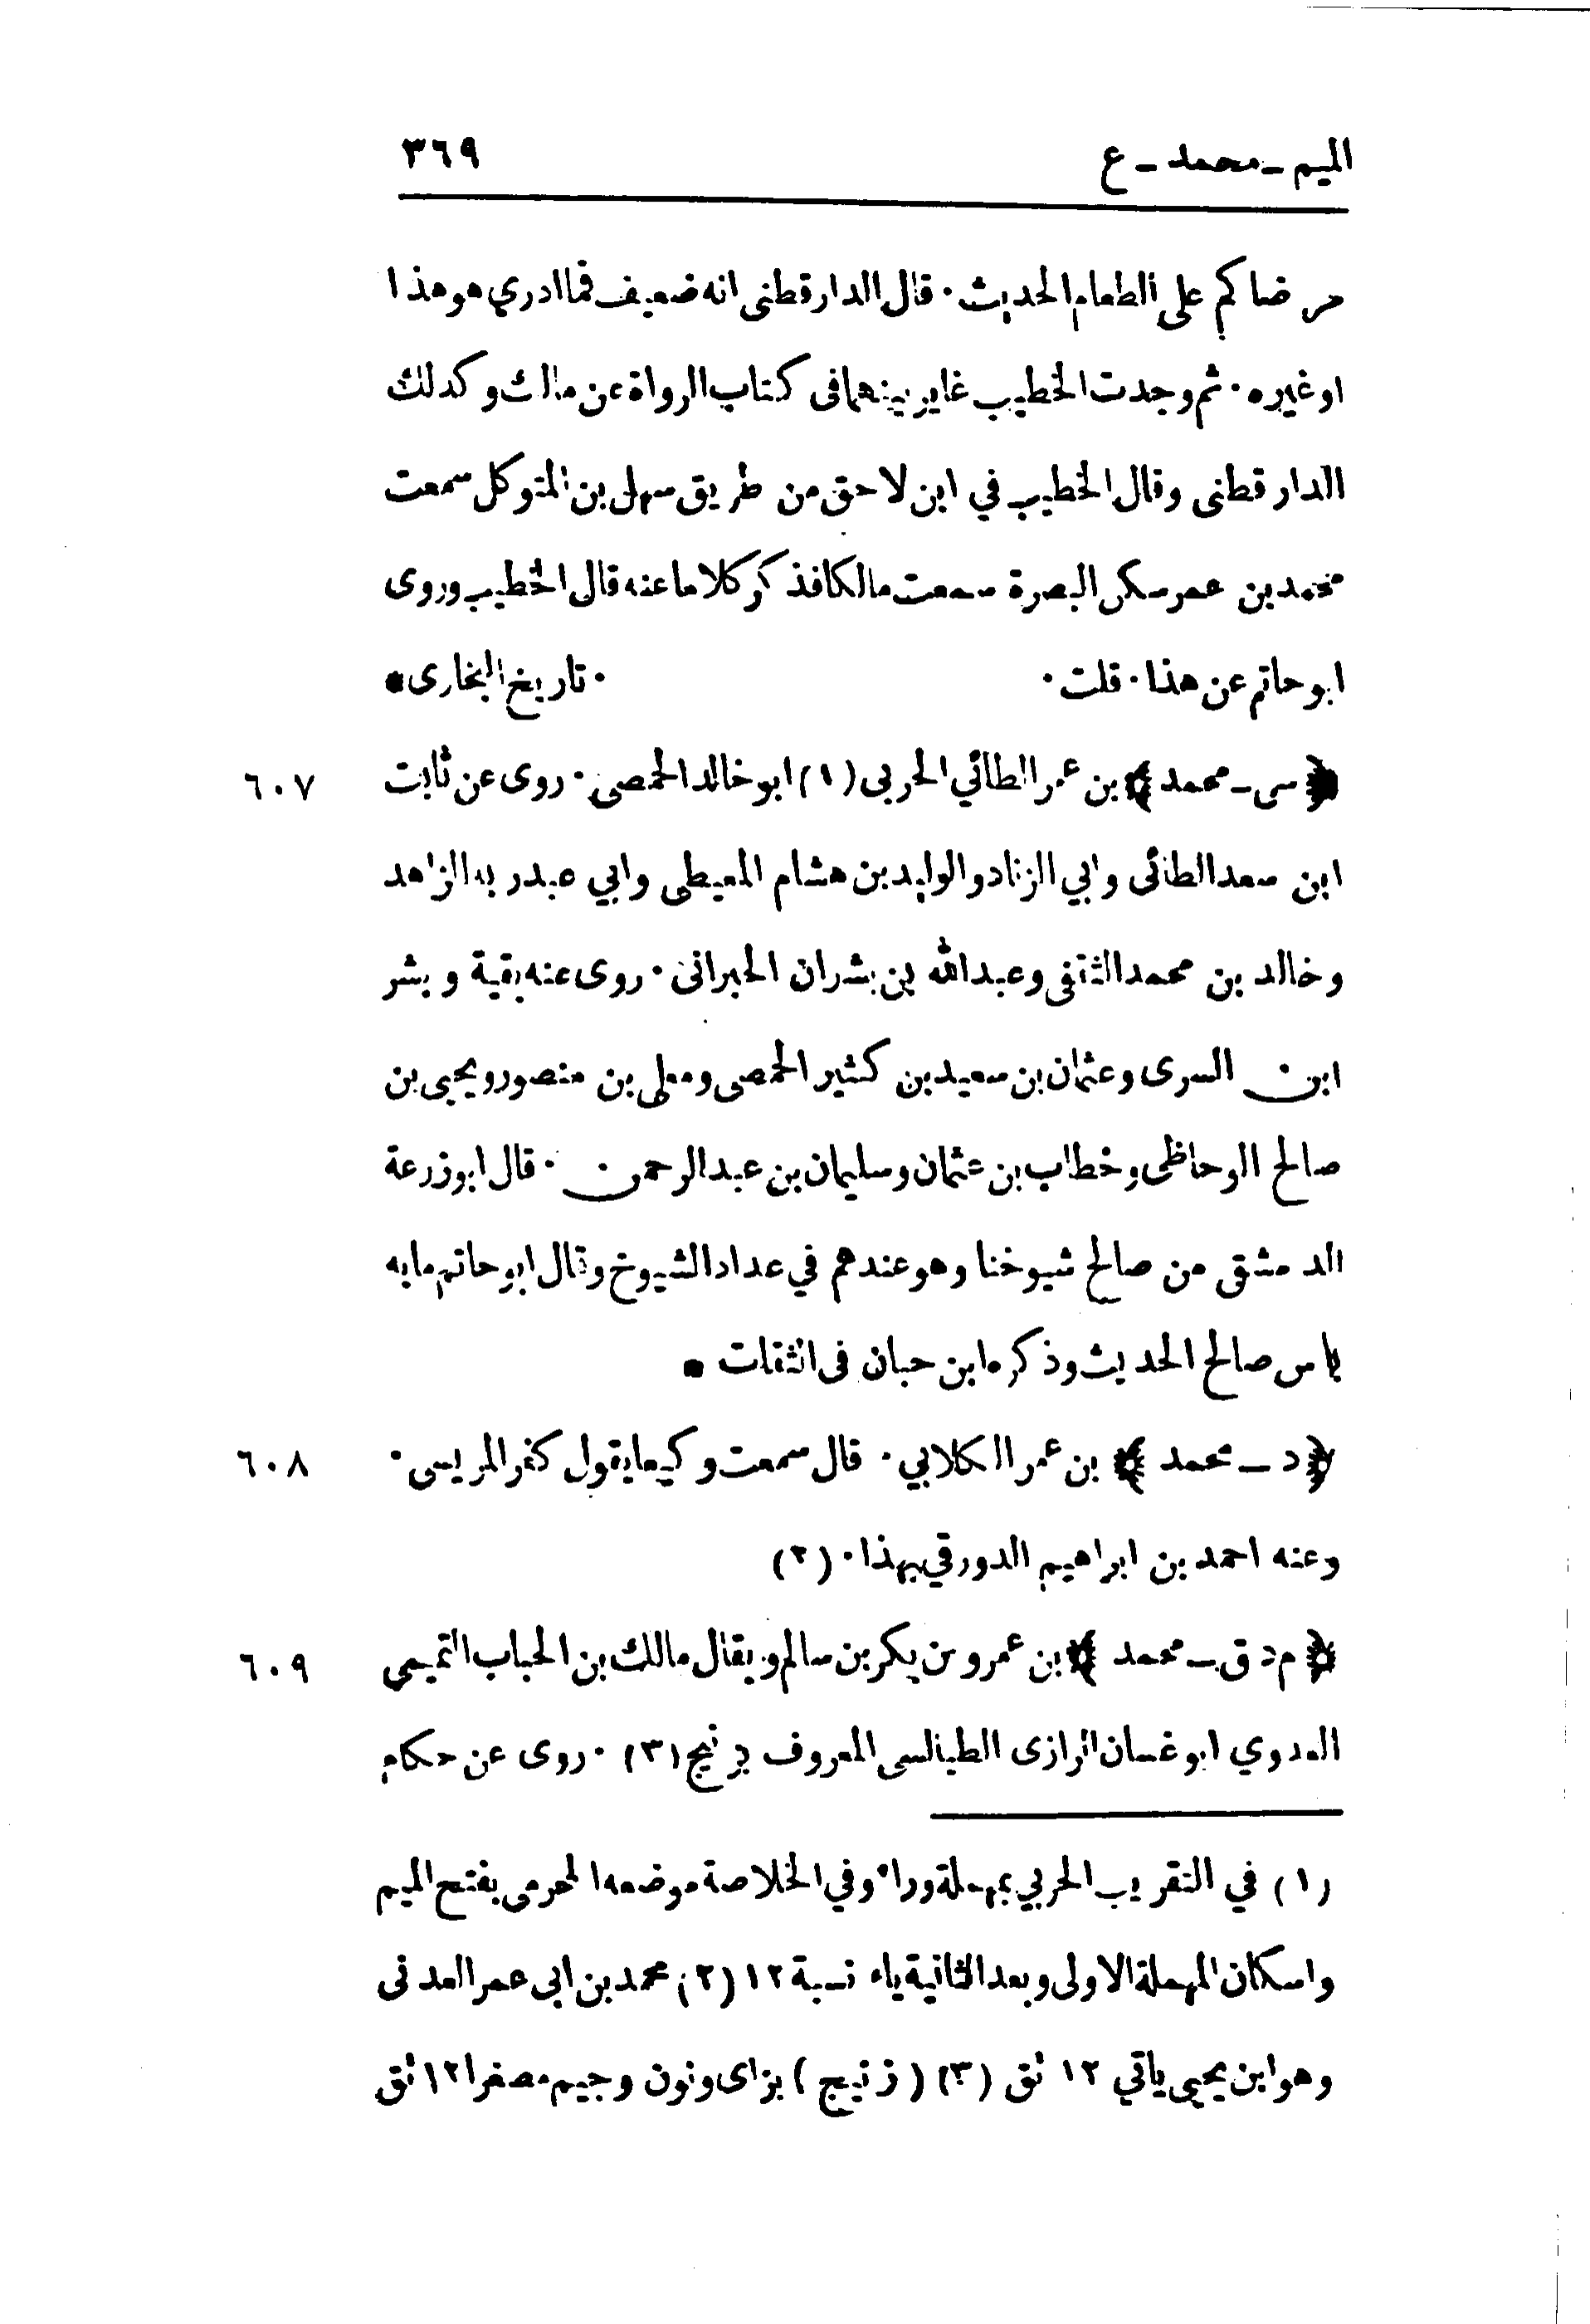 الميم ـ محمد ـ ع ٣٦٩
مرضاكم على الطعام الحديث · قال الدارقطنى انه ضعيف فما ادري هو هذا
او غيره · ثم وجدت الخطيب غاير بينهما فى كتاب الرواة عن مالك وكذلك
الدارقطنى وقال الخطيب في ابن لاحق من طريق سهل بن المتوكل سمعت
محمد بن عمر سكن البصرة سمعت مالكا فذكر كلاما عنه قال الخطيب وروى
ابو حاتم عن هذا · قلت · · تاريخ البخارى *
﴿ سى ـ محمد ﴾ بن عمر الطائي الحربى (١) ابو خالد الحمصى · روى عن ثابت ٦٠٧
ابن سعد الطائى وابي الزناد والوليد بن هشام المعيطى وابي عبد ربه الزاهد
وخالد بن محمد الثقفى وعبد الله بن بشران الحبرانى · روى عنه بقية وبشر
ابن السرى وعثمان بن سعيد بن كثير الحمصى ومعلى بن منصور ويحيى بن
صالح الوحاظى وخطاب بن عثمان وسليمان بن عبد الرحمن · قال ابو زرعة
الدمشقى من صالح شيوخنا وهو عندهم في عداد الشيوخ وقال ابو حاتم ما به
باس صالح الحديث وذكره ابن حبان فى الثقات *
﴿ د ـ محمد ﴾ بن عمر الكلابي · قال سمعت وكيعا يقول كفر المريسى · ٦٠٨
وعنه احمد بن ابراهيم الدورقي بهذا · (٢)
﴿ م د ق ـ محمد ﴾ بن عمرو بن بكر بن سالم ويقال مالك بن الحباب التميمي ٦٠٩
العدوي ابو غسان الرازى الطيالسى المعروف بزنيج (٣) · روى عن حكام
(١) في التقريب الحربي بمهملة وراء وفي الخلاصة موضعه المحرمى بفتح الميم
واسكان المهملة الاولى وبعد الثانية ياء نسبة ١٢ (٢) محمد بن ابى عمر العدنى
وهو ابن يحيى ياتي ١٢ تق (٣) (زنيج) بزاى ونون وجيم مصغرا ١٢ تق